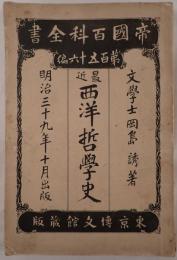 帝國百科全書
第百五十六編
文學士岡島誘著
最近
西洋哲學史
明治三十九年十月出版
東京博文館蔵版